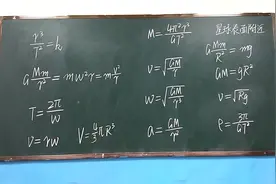 r³/T² = k
G Mm/r² = mω²r = m v²/r
T = 2π/ω
v = rω
V = 4/3 πR³
M = 4π²r³/GT²
v = √(GM/r)
w = √(GM/r³)
a = GM/r²
星球表面附近
G Mm/R² = mg
GM = gR²
v = √Rg
ρ = 3π/GT²